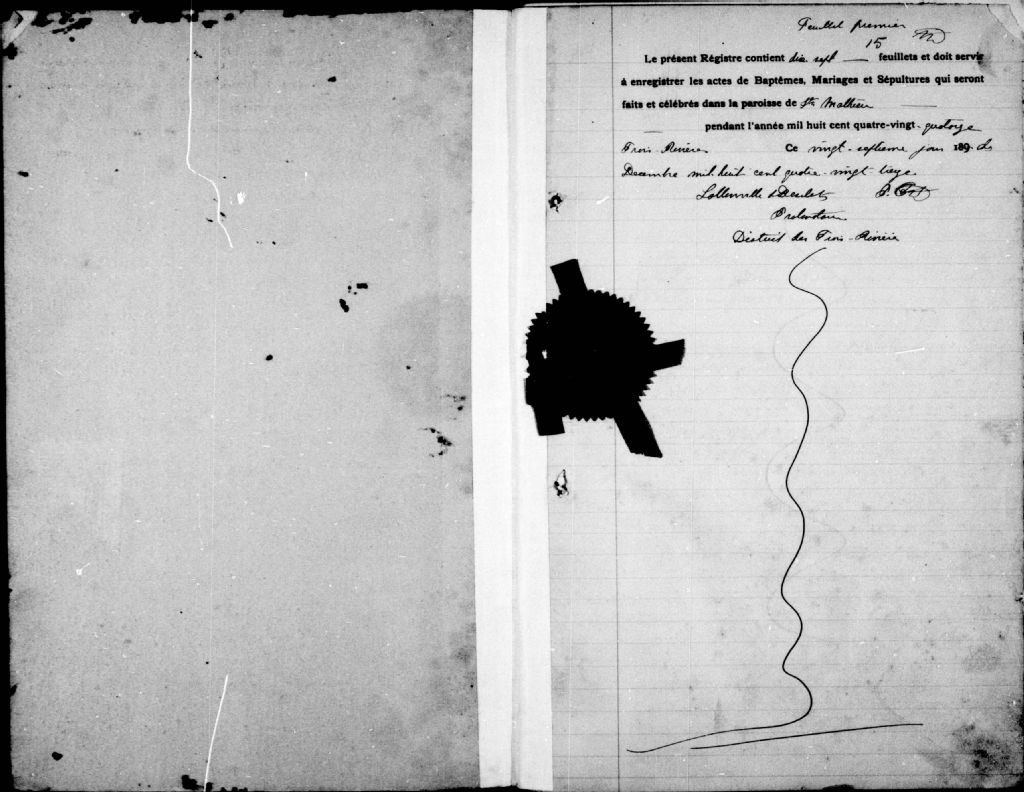 Feuillet premier
15
Le présent Régistre contient dix sept feuillets et doit servir
à enregistrer les actes de Baptêmes, Mariages et Sépultures qui seront
faits et célébrés dans la paroisse de St. Mathieu
pendant l'année mil huit cent quatre-vingt-quatorze
Trois-Rivières Ce vingt-septieme jour 189 de
Decembre mil huit cent quatre-vingt treize
Protonotaire
District des Trois-Rivières